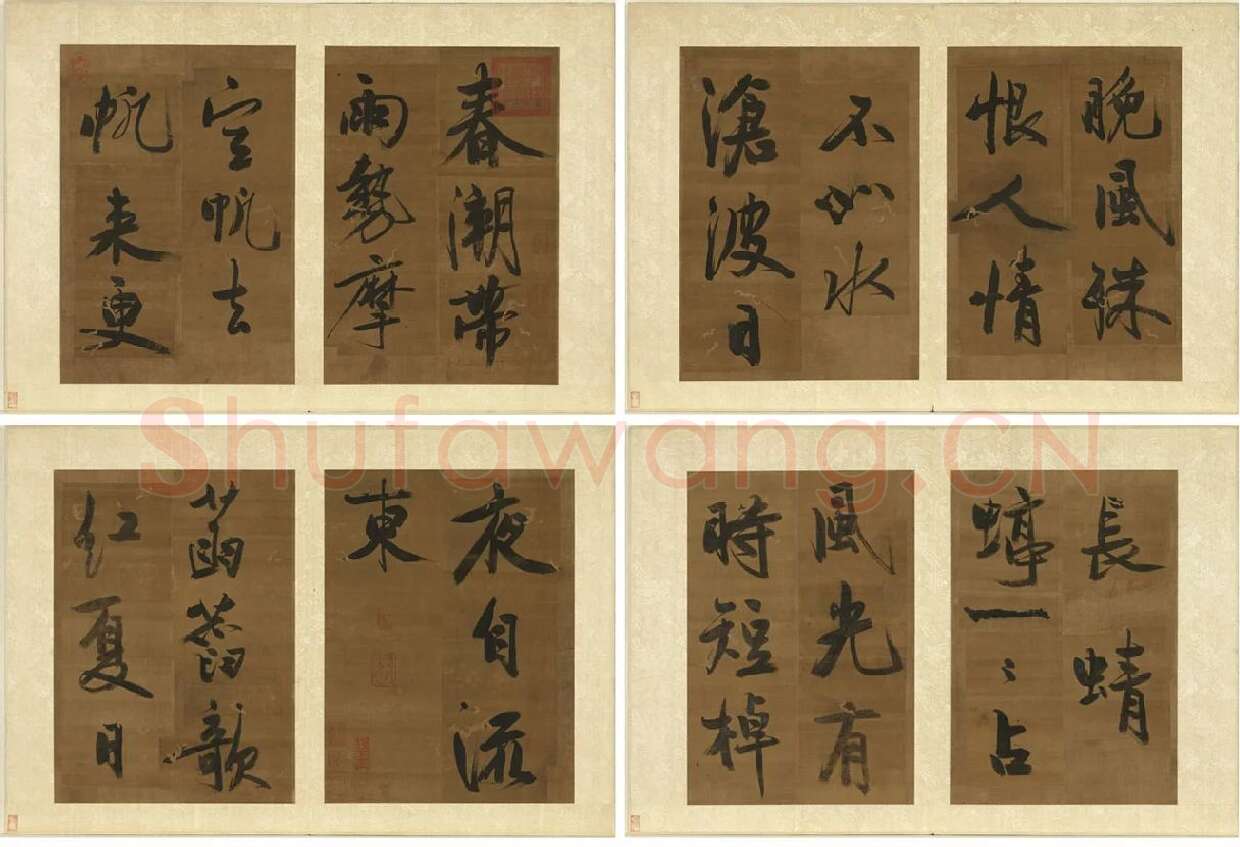 春潮帶
雨勢摩
空帆去
帆来更
晚風殊
恨人情
不似水
滄波日
夜自流
東
菡萏歌
紅夏日
長蜻
蝏一〻占
風光有
時短棹
Shufawang.CN